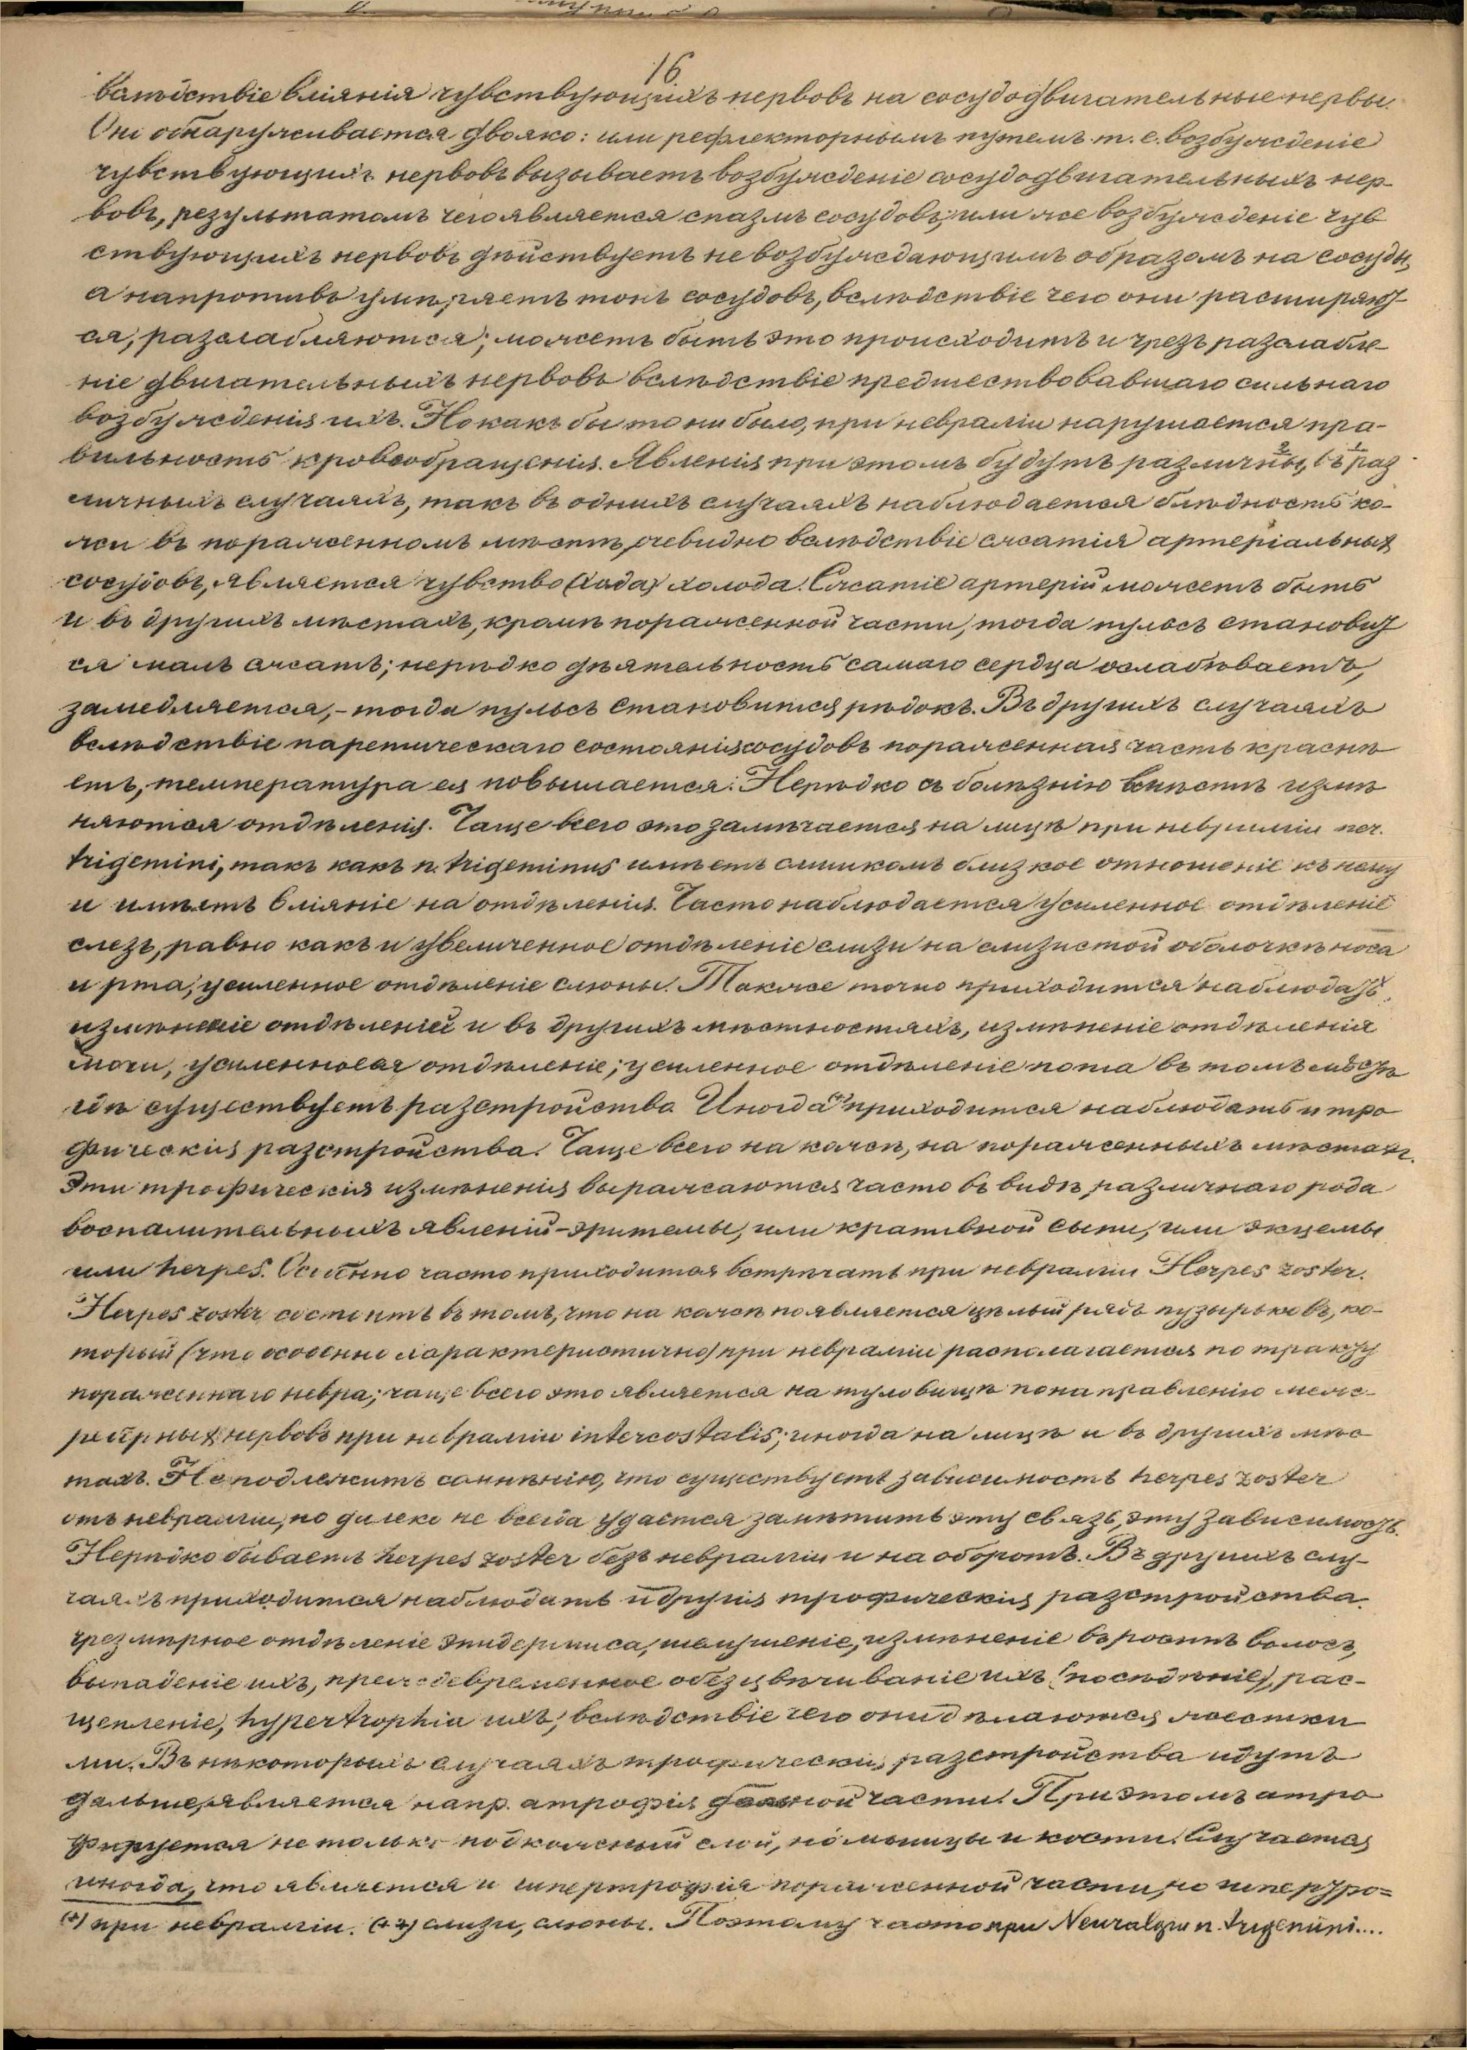 16
вслѣдствіе вліянія чувствующихъ нервовъ на сосудодвигательные нервы.
Оно обнаруживается двояко: или рефлекторнымъ путемъ т. е. возбужденіе
чувствующихъ нервовъ вызываетъ возбужденіе сосудодвигательныхъ нер
вовъ, результатомъ чего является спазмъ сосудовъ, или же возбужденіе чув
ствующихъ нервовъ дѣйствуетъ не возбуждающимъ образомъ на сосуды,
а напротивъ умѣряетъ тонъ сосудовъ, вслѣдствіе чего они расширяют
ся, разслабляются; можетъ быть это происходитъ и чрезъ разслабле-
ніе двигательныхъ нервовъ вслѣдствіе предшествовавшаго сильнаго
возбужденія ихъ. Но какъ бы то ни было, при невралгіи нарушается пра-
вильность кровообращенія. Явленія при этомъ будутъ различны, 2 въ 1 раз
личныхъ случаяхъ, такъ въ однихъ случаяхъ наблюдается блѣдность ко-
жи въ пораженномъ мѣстѣ, очевидно вслѣдствіе сжатія артеріальныхъ
сосудовъ, является чувство (хода) холода. Сжатіе артерій можетъ быть
и въ другихъ мѣстахъ, кромѣ пораженной части, тогда пульсъ становит
ся малъ сжатъ; нерѣдко дѣятельность самаго сердца ослабѣваетъ,
замедляется, - тогда пульсъ становится рѣдокъ. Въ другихъ случаяхъ
вслѣдствіе паретическаго состоянія сосудовъ пораженная часть краснѣ
етъ, температура ея повышается. Нерѣдко съ болѣзнію вмѣстѣ измѣ
няются отдѣленія. Чаще всего это замѣчается на лицѣ при невралгіи ner.
trigemini, такъ какъ n. trigeminus имѣетъ слишкомъ близкое отношеніе къ нему
и имѣетъ вліяніе на отдѣленія. Часто наблюдается усиленное отдѣленіе
слезъ, равно какъ и увеличенное отдѣленіе слизи на слизистой оболочкѣ носа
и рта, усиленное отдѣленіе слюны. Также точно приходится наблюдать
измѣненіе отдѣленій и въ другихъ мѣстностяхъ, измѣненіе отдѣленія
мочи, отдѣленіе; усиленное отдѣленіе пота въ томъ мѣстѣ
гдѣ существуетъ разстройство. Иногда (+) приходится наблюдать и тро
фическія разстройства. Чаще всего на кожѣ, на пораженныхъ мѣстахъ.
Эти трофическія измѣненія выражаются часто въ видѣ различнаго рода
воспалительныхъ явленій - эритемы, или крапивной сыпи, или экземы
или herpes. Особенно часто приходится встрѣчать при невралгіи Herpes zoster.
Herpes zoster состоитъ въ томъ, что на кожѣ появляется цѣлый рядъ пузырьковъ, ко-
торый (что особенно характеристично) при невралгіи располагается по тракту
пораженнаго невра; чаще всего это является на туловищѣ по направленію меж-
реберныхъ нервовъ при невралгіи intercostalis; иногда на лицѣ и въ другихъ мѣс
тахъ. Не подлежитъ сомнѣнію, что существуетъ зависимость herpes zoster
отъ невралгіи, но далеко не всегда удается замѣтить эту связь, эту зависимость.
Нерѣдко бываетъ herpes zoster безъ невралгіи и на оборотъ. Въ другихъ слу-
чаяхъ приходится наблюдать и другія трофическія разстройства.
чрезмѣрное отдѣленіе эпидермиса, шелушеніе, измѣненіе въ ростѣ волосъ,
выпаденіе ихъ, преждевременное обезцвѣчиваніе ихъ (посѣдѣніе), рас-
щепленіе, hypertrophia ихъ, вслѣдствіе чего они дѣлаются жестки
ми. Въ нѣкоторыхъ случаяхъ трофическія разстройства идутъ
дальше, является напр. атрофія больной части. При этомъ атро
фируется не только подкожный слой, но мышцы и кости. Случается
иногда, что является и гипертрофія пораженной части, но гипертро=
(+) при невралгіи. (++) слизи, слюны. Поэтому часто при Neuralgia n. trigemini....